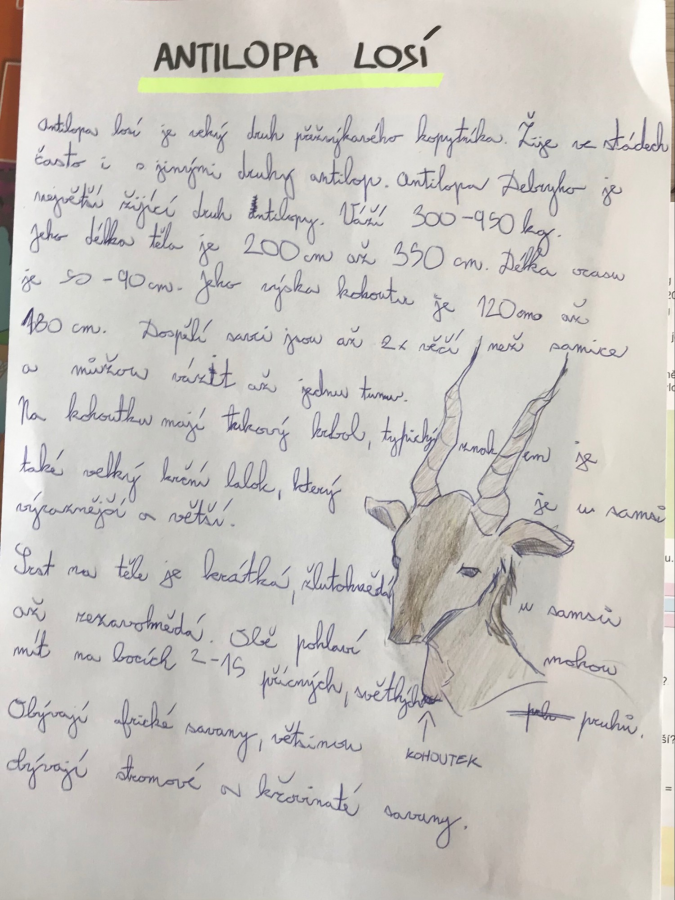 ANTILOPA LOSÍ
Antilopa losí je velký druh přežvýkavého kopytníka. Žije ve stádech
často i s jinými druhy antilop. Antilopa Debryho je
největší žijící druh antilopy. Váží 300-950 kg.
Jeho délka těla je 200 cm až 350 cm. Délka ocasu
je 50-90cm. Jeho výska kohoutu je 120cmo až
180 cm. Dospělí samci jsou až 2x věčí než samice
a můžou vázit až jednu tunu.
Na kohoutku mají tukový hrbol, typický znakem je
také velký krční lalok, který je u samsů
výraznější a větší.
Srst na těle je krátká, žlutohnědá u samsů
až rezavohnědá. Obě pohlaví mohou
mít na bocích 2-15 příčných, světlých pruhů.
Obývají africké savany, většinou
KOHOUTEK
obývají stromové a křovinaté savany.